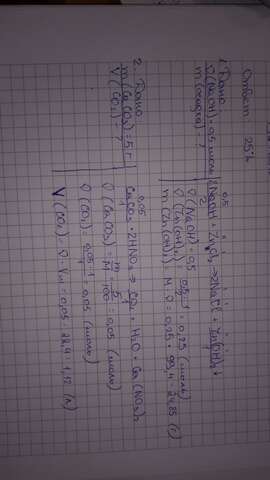 Ответ 25%
1. Дано:
ν(NaOH) = 0,5 моль
m(осадка) - ?
0,5
2NaOH + ZnCl₂ → 2NaCl + Zn(OH)₂↓
2
ν(NaOH) = 0,5
ν(Zn(OH)₂) = 0,5·1 / 2 = 0,25 (моль)
m(Zn(OH)₂) = M·ν = 0,25 · 99,4 = 24,85 (г)
2. Дано:
m(CaCO₃) = 5 г
V(CO₂) - ?
0,05
CaCO₃ + 2HNO₃ → CO₂ + H₂O + Ca(NO₃)₂
ν(CaCO₃) = m / M = 5 / 100 = 0,05 (моль)
ν(CO₂) = 0,05·1 / 1 = 0,05 (моль)
V(CO₂) = ν · Vm = 0,05 · 22,4 = 1,12 (л)